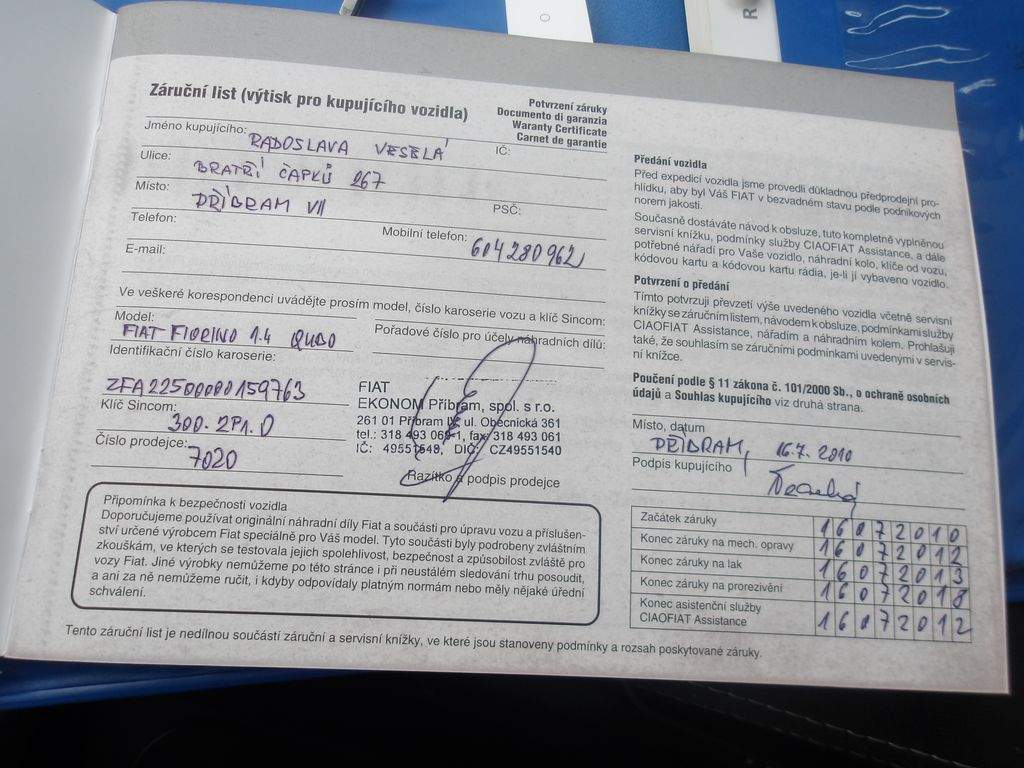 R
Záruční list (výtisk pro kupujícího vozidla)
Potvrzení záruky
Documento di garanzia
Waranty Certificate
Carnet de garantie
Jméno kupujícího: RADOSLAVA VESELÁ IČ:
Ulice: BRATŘÍ ČAPKŮ 267
Místo: PŘÍBRAM VII PSČ:
Telefon: Mobilní telefon: 604280962
E-mail:
Ve veškeré korespondenci uvádějte prosím model, číslo karoserie vozu a klíč Sincom:
Model: Pořadové číslo pro účely náhradních dílů:
FIAT FIORINO 1.4 QUBO
Identifikační číslo karoserie:
ZFA22500000159763
Klíč Sincom:
300.2P1.0
Číslo prodejce:
7020
FIAT
EKONOM Příbram, spol. s r.o.
261 01 Příbram IV, ul. Obecnická 361
tel.: 318 493 060-1, fax: 318 493 061
IČ: 49551540, DIČ: CZ49551540
Razítko a podpis prodejce
Připomínka k bezpečnosti vozidla
Doporučujeme používat originální náhradní díly Fiat a součásti pro úpravu vozu a příslušen-
ství určené výrobcem Fiat speciálně pro Váš model. Tyto součásti byly podrobeny zvláštním
zkouškám, ve kterých se testovala jejich spolehlivost, bezpečnost a způsobilost zvláště pro
vozy Fiat. Jiné výrobky nemůžeme po této stránce i při neustálém sledování trhu posoudit,
a ani za ně nemůžeme ručit, i kdyby odpovídaly platným normám nebo měly nějaké úřední
schválení.
Tento záruční list je nedílnou součástí záruční a servisní knížky, ve které jsou stanoveny podmínky a rozsah poskytované záruky.
Předání vozidla
Před expedicí vozidla jsme provedli důkladnou předprodejní pro-
hlídku, aby byl Váš FIAT v bezvadném stavu podle podnikových
norem jakosti.
Současně dostáváte návod k obsluze, tuto kompletně vyplněnou
servisní knížku, podmínky služby CIAOFIAT Assistance, a dále
potřebné nářadí pro Vaše vozidlo, náhradní kolo, klíče od vozu,
kódovou kartu a kódovou kartu rádia, je-li jí vybaveno vozidlo.
Potvrzení o předání
Tímto potvrzuji převzetí výše uvedeného vozidla včetně servisní
knížky se záručním listem, návodem k obsluze, podmínkami služby
CIAOFIAT Assistance, nářadím a náhradním kolem. Prohlašuji
také, že souhlasím se záručními podmínkami uvedenými v servis-
ní knížce.
Poučení podle § 11 zákona č. 101/2000 Sb., o ochraně osobních
údajů a Souhlas kupujícího viz druhá strana.
Místo, datum
PŘÍBRAM, 16.7.2010
Podpis kupujícího
Začátek záruky 16072010
Konec záruky na mech. opravy 16072012
Konec záruky na lak 16072013
Konec záruky na prorezivění 16072018
Konec asistenční služby
CIAOFIAT Assistance 16072012